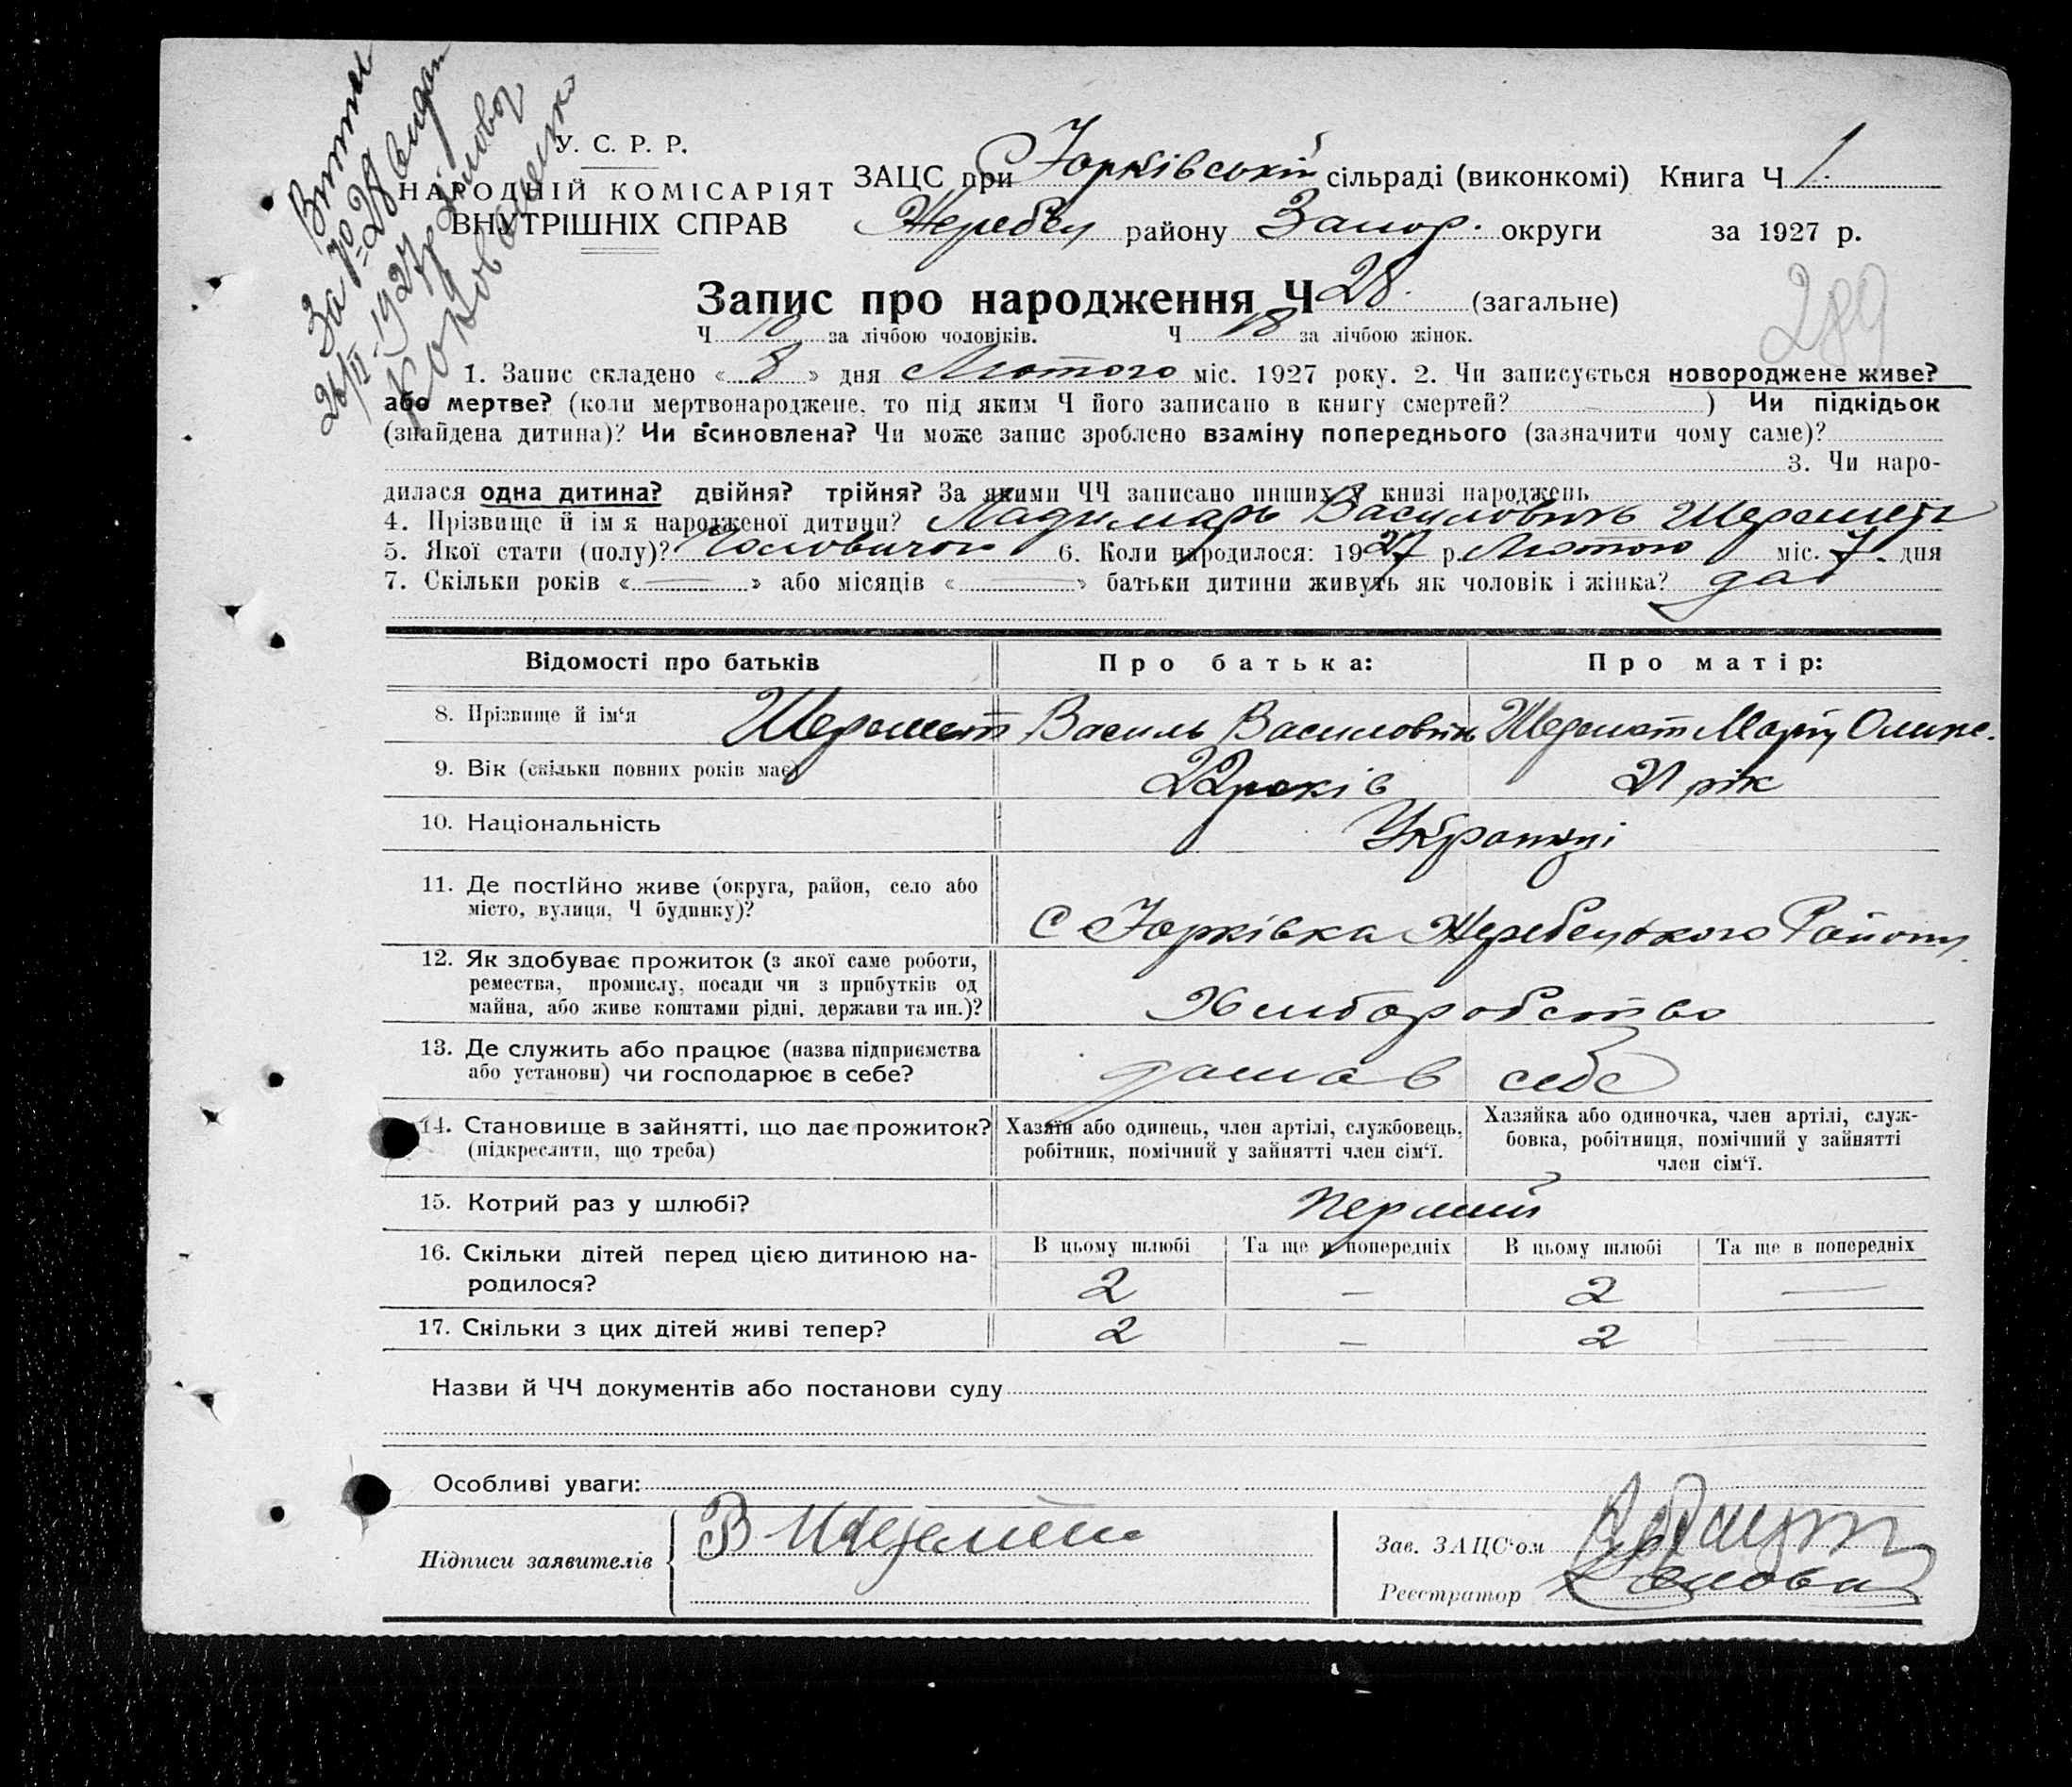 Витяг
За № 28 видан
26/II-1927
У. С. Р. Р.
НАРОДНІЙ КОМІСАРІЯТ
ВНУТРІШНІХ СПРАВ
ЗАЦС при Юрківській сільраді (виконкомі) Книга Ч 1.
Жеребец району Запор. округи за 1927 р.
289
Запис про народження Ч 28. (загальне)
Ч 10 за лічбою чоловіків. Ч 18 за лічбою жінок.
1. Запис складено « 8 » дня Лютого міс. 1927 року. 2. Чи записується новороджене живе?
або мертве? (коли мертвонароджене, то під яким Ч його записано в книгу смертей? — ) Чи підкідьок
(знайдена дитина)? Чи всиновлена? Чи може запис зроблено взаміну попереднього (зазначити чому саме)?
3. Чи наро-
дилася одна дитина? двійня? трійня? За якими ЧЧ записано инших у книзі народжень
4. Прізвище й імя народженої дитини? Ладимарь Василовить Шеремет
5. Якої стати (полу)? Чоловичок 6. Коли народилося: 1927 р. Лютого міс. 7. дня
7. Скільки років « — » або місяців « — » батьки дитини живуть як чоловік і жінка? да
Відомості про батьків Про батька: Про матір:
8. Прізвище й ім‘я Шеремет Василь Василовить Шеремет Марія Оликс.
9. Вік (скільки повних років має) 22 років 21 рік
10. Національність Українці
11. Де постійно живе (округа, район, село або
місто, вулиця, Ч будинку)? С Юрківка Жеребецького Району
12. Як здобуває прожиток (з якої саме роботи,
ремества, промислу, посади чи з прибутків од
майна, або живе коштами рідні, держави та ин.)? Хлиборобство
13. Де служить або працює (назва підприємства
або установи) чи господарює в себе? дома в себе
14. Становище в зайнятті, що дає прожиток?
(підкреслити, що треба)
Хазяїн або одинець, член артілі, службовець,
робітник, помічний у зайнятті член сім‘ї.
Хазяйка або одиночка, член артілі, служ-
бовка, робітниця, помічний у зайнятті
член сім‘ї.
15. Котрий раз у шлюбі? перший
16. Скільки дітей перед цією дитиною на-
родилося?
В цьому шлюбі Та ще в попередніх В цьому шлюбі Та ще в попередніх
2 — 2 —
17. Скільки з цих дітей живі тепер? 2 — 2 —
Назви й ЧЧ документів або постанови суду
Особливі уваги:
Підписи заявителів В Шеремет
Зав. ЗАЦС‘ом
Реєстратор